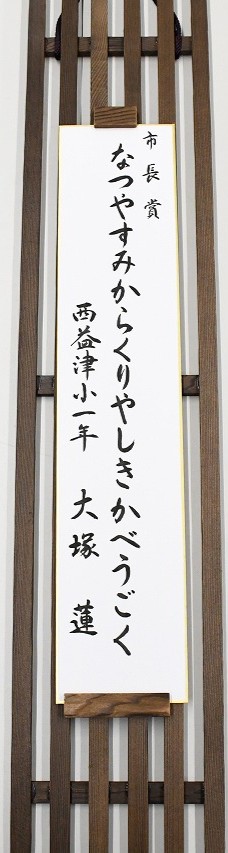 市長賞
なつやすみからくりやしきかべうごく
西益津小一年 大塚 蓮